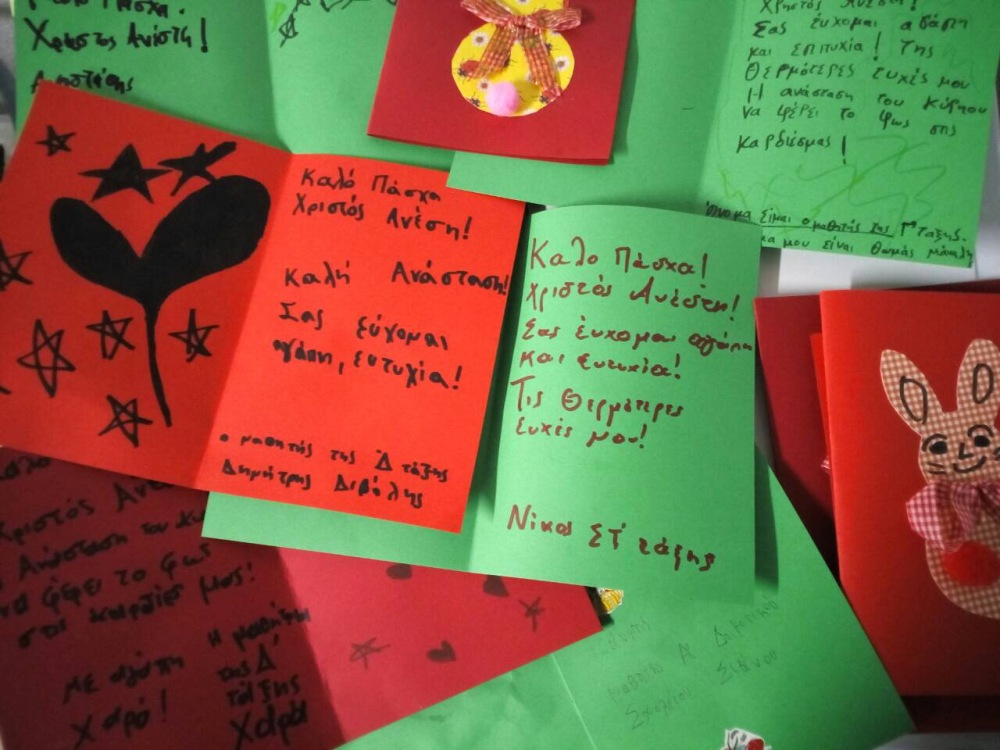 Πάσχα.
Χρηστος Ανέστη!
Χρηστός Ανέστη!
Σας ευχομαι αγάπη
και επιτυχία! Της
Θερμότερες ευχές μου
Η ανάσταση του Κύριου
να φέρει το φως στις
καρδιέςμας!
όνομα είμαι ο μαθητής της Γ' Ταξης.
μου είναι Θωμάς
Καλό Πάσχα
Χριστός Ανέση!
Καλή Ανάσταση!
Σας εύχομαι
αγάπη, ευτυχία!
ο μαθητής της Δ τάξης
Δημήτρης Διβόλης
Καλο Πάσχα!
Χριστός Ανέστη!
Σας έυχομαι αγάπη
και ευτυχία!
Τις θερμότερες
ευχές μου!
Νίκος ΣΤ' τάξης
Χριστός
Ανάσταση του
να φέρει το φως
στις καρδιές μας!
Με αγάπη
Χαρά!
Η μαθήτρια
της Δ'
τάξης
Χαρά
Δημοτικού
Σχολείου